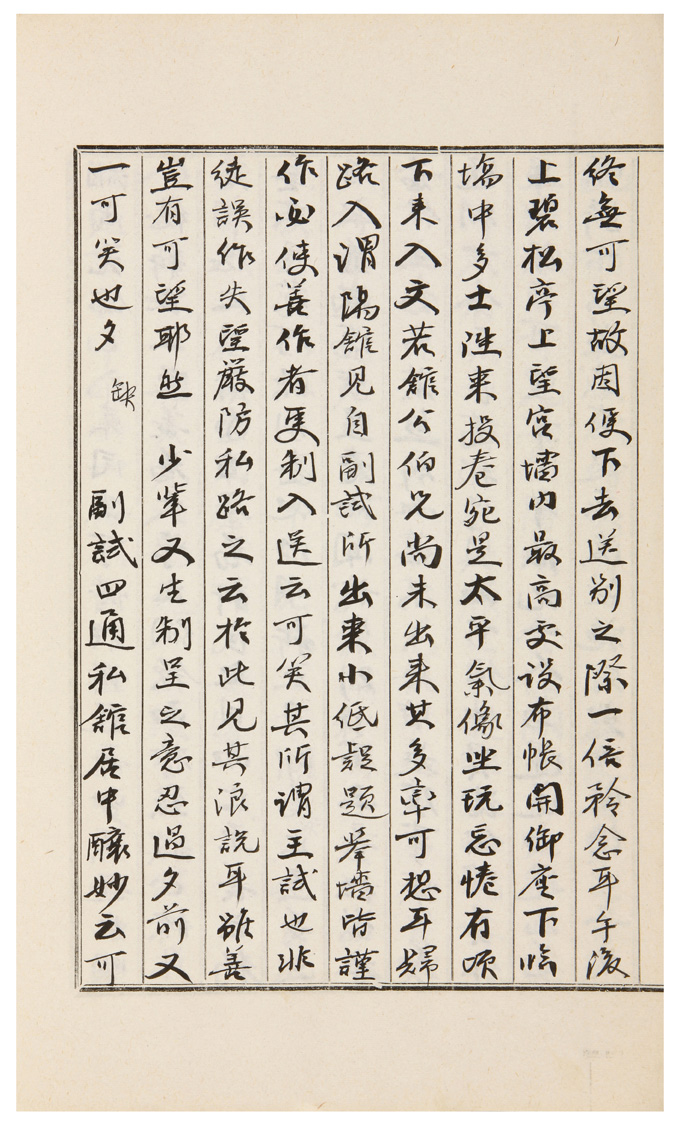 終無可望故因便下去送別之際一倍矜念耳午後
上碧松亭上望宮墻內最高處設布帳開御座下臨
場中多士陞來投卷宛是太平氣像坐玩忘惓有頃
下來入文若館公伯兄尚未出來其多率可想耳歸
路入謂陽館見自副試所出來小低疑題舉墻皆謹
作必使善作者更制入送云可笑其所謂主試也非
徒誤作失望嚴防私路之云於此見其浪說耳雖善
豈有可望耶然 少輩又生制呈之意忍過夕前又
一可笑也夕 缺 副試四通私館居中釀妙云可